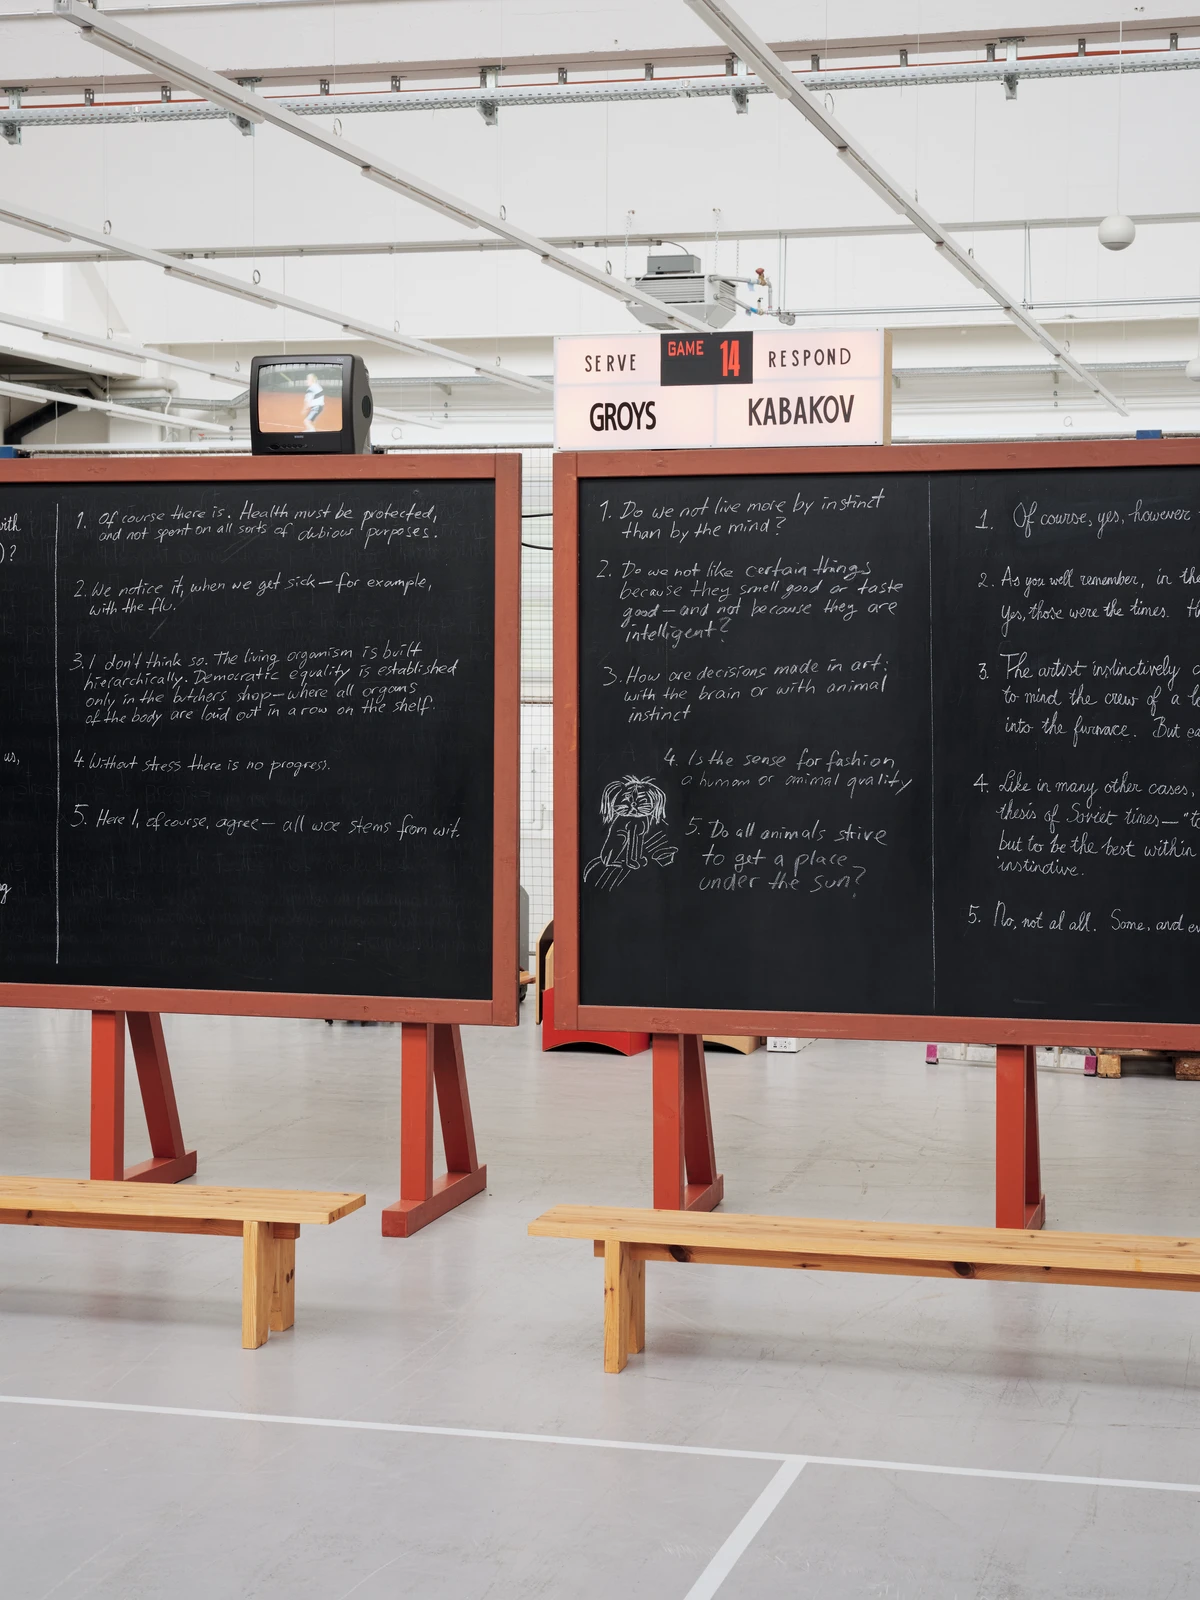 SERVE
GAME 14
RESPOND
GROYS
KABAKOV
with
)?
us,
1. Of course there is. Health must be protected,
and not spent on all sorts of dubious purposes.
2. We notice it, when we get sick — for example,
with the flu.
3. I don't think so. The living organism is built
hierarchically. Democratic equality is established
only in the butchers shop — where all organs
of the body are laid out in a row on the shelf.
4. Without stress there is no progress.
5. Here I, of course, agree — all woe stems from wit.
1. Do we not live more by instinct
than by the mind?
2. Do we not like certain things
because they smell good or taste
good — and not because they are
intelligent?
3. How are decisions made in art:
with the brain or with animal
instinct
4. Is the sense for fashion,
a human or animal quality
5. Do all animals strive
to get a place
under the sun?
1. Of course, yes, however
2. As you well remember, in the
Yes, those were the times.
3. The artist instinctively
to mind the crew of a
into the furnace. But
4. Like in many other cases,
thesis of Soviet times — "to
but to be the best within
instinctive.
5. No, not al all. Some, and